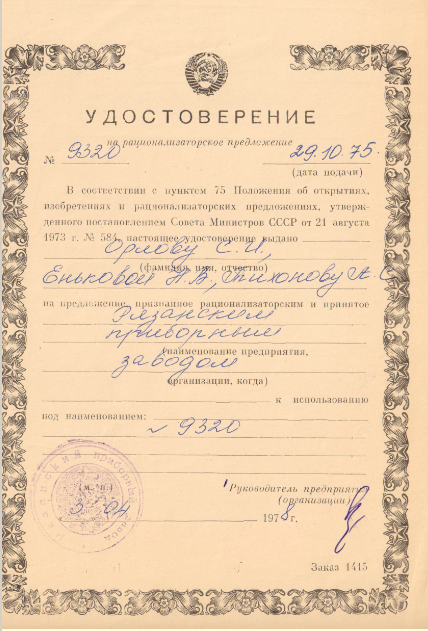 УДОСТОВЕРЕНИЕ
на рационализаторское предложение
№ 9320 29.10.75.
(дата подачи)
В соответствии с пунктом 75 Положения об открытиях,
изобретениях и рационализаторских предложениях, утверж-
денного постановлением Совета Министров СССР от 21 августа
1973 г. № 584, настоящее удостоверение выдано
Орлову С.И,
(фамилия, имя, отчество)
Еньковой Н.В., Тихонову А.С
на предложение, признанное рационализаторским и принятое
Рязанским
приборным
(наименование предприятия,
заводом
организации, когда)
к использованию
под наименованием:
9320
Руководитель предприятия
(м. п.) (организации)
3 04 1978г.
Рязанский приборный завод
Заказ 1415